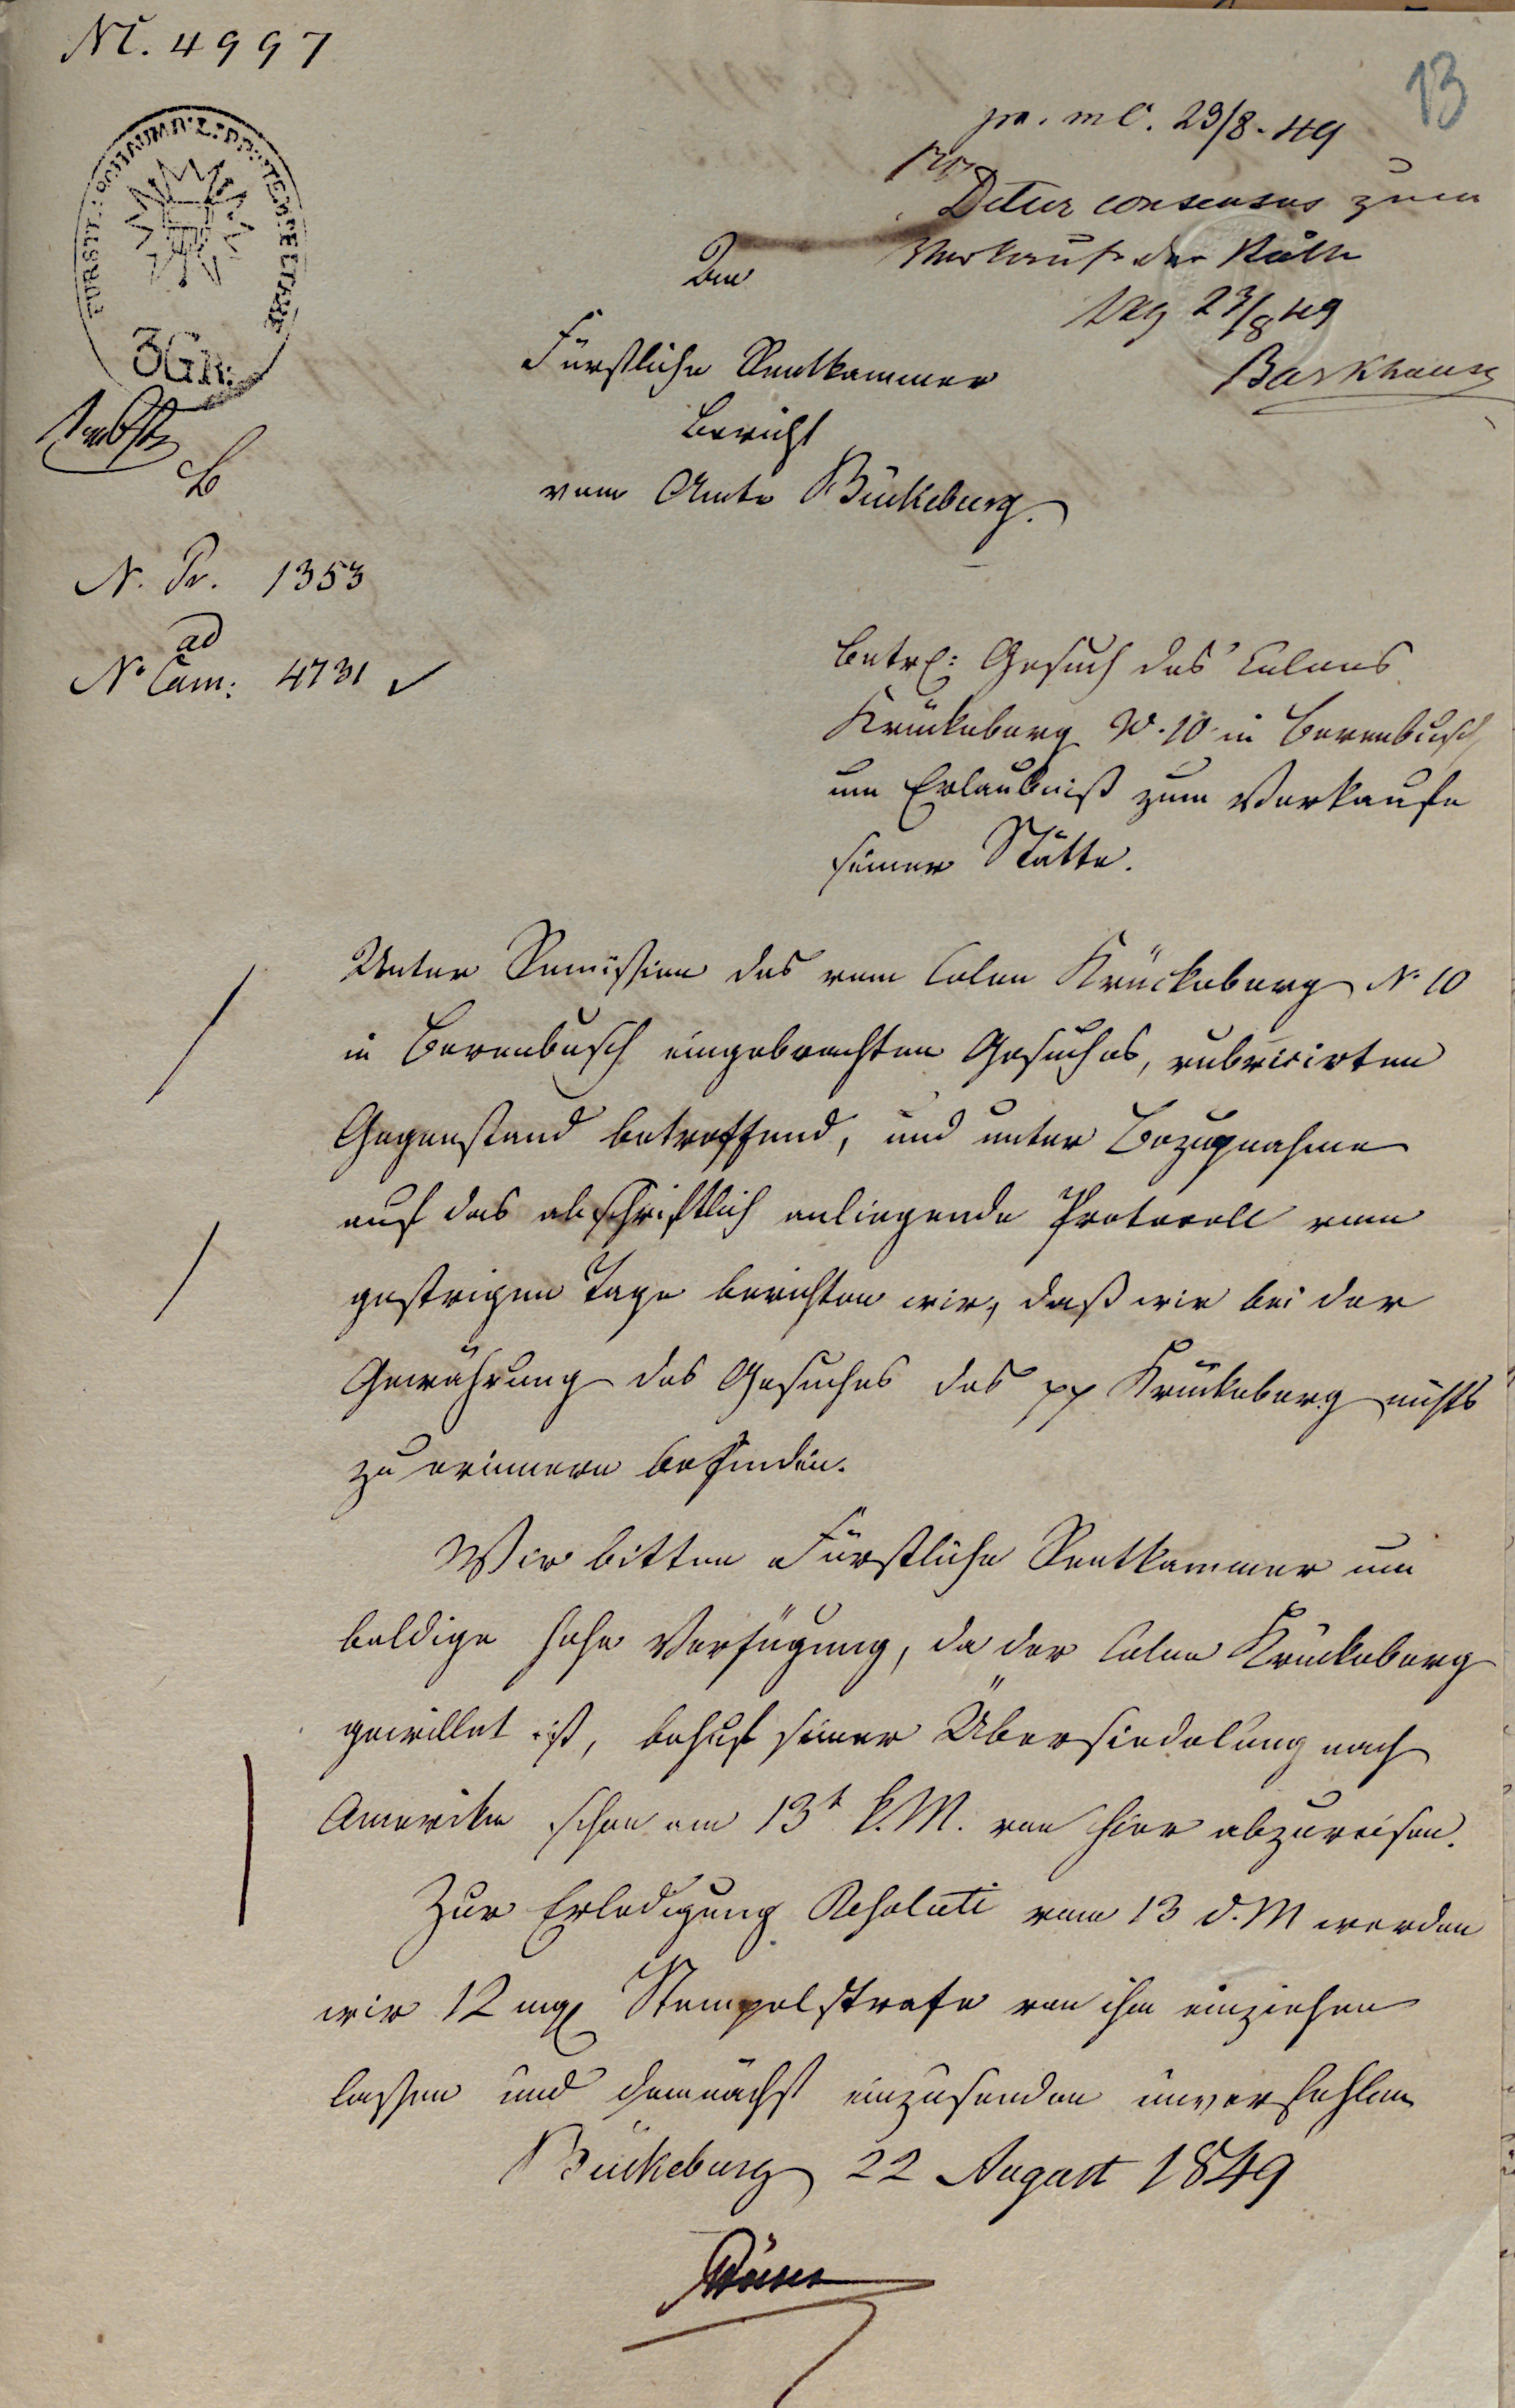 Nr. 4997
13
pr. m C. 23/8. 49
Detur consensus zum
Verkauf der Stätte
23/8 49
Barkhausen
3 Gr.
An
Fürstliche Rentkammer
Bericht
vom Amte Bückeburg.
N. Pr. 1353
ad
No Cam: 4731
betr: Gesuch des Colons
Krückeberg No. 10 in Berenbusch
um Erlaubniß zum Verkaufe
seiner Stätte.
Unter Remission des vom Colon Krückeberg No 10
in Berenbusch eingebrachten Gesuches, rubricirten
Gegenstand betreffend, und unter Bezugnahme
auf das abschriftlich anliegende Protocoll vom
gestrigen Tage berichten wir, daß wir bei der
Gewährung des Gesuches des pp Krückeberg nichts
zu erinnern befinden.
Wir bitten Fürstliche Rentkammer um
baldige hohe Verfügung, da der Colon Krückeberg
gewillet ist, behuf seiner Übersiedelung nach
Amerika schon am 13t k. M. von hier abzureisen.
Zur Erledigung Resoluti vom 13 d. M werden
wir 12 mg Stempelstrafe von ihm einziehen
lassen und demnächst einzusenden unverfehlen
Bückeburg 22 August 1849